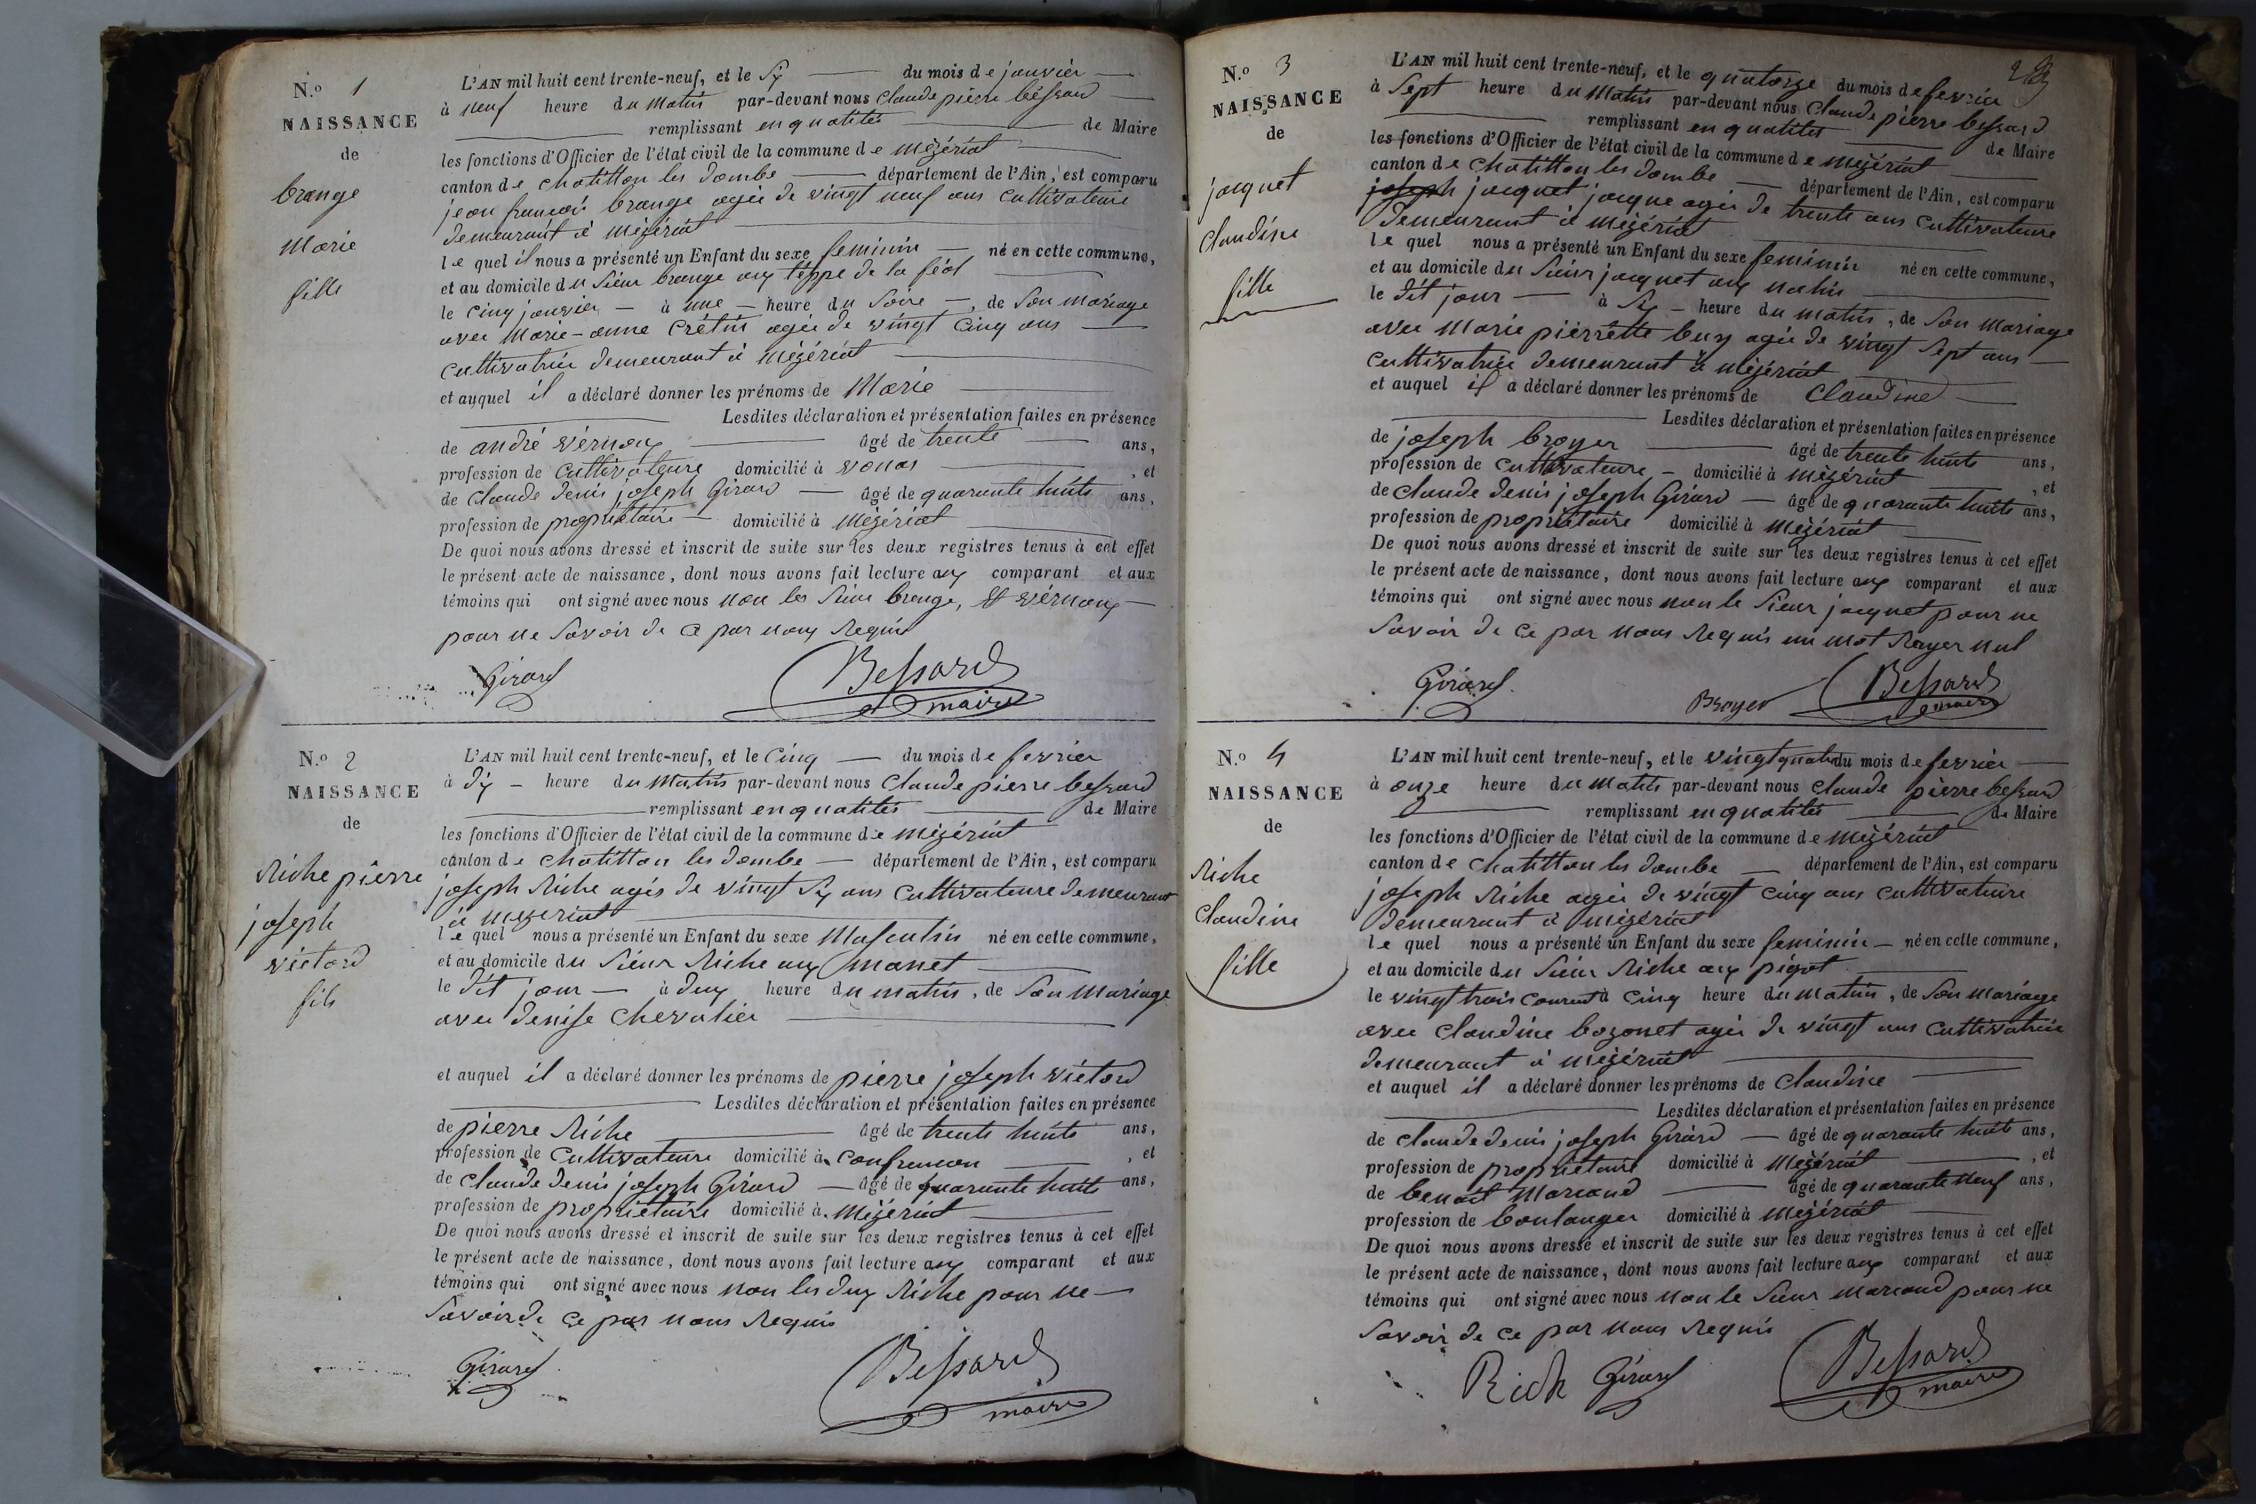 N.o 1
NAISSANCE
de
brange
marie
fille
L'AN mil huit cent trente-neuf, et le six du mois de janvier
à neuf heure du matin par-devant nous Claude pierre bessard
remplissant en qualités de Maire
les fonctions d'Officier de l'état civil de la commune de mézériat
canton de chatillon les dombe département de l'Ain, est comparu
jean françois brange agée de vingt neuf ans cultivateure
demeurant à mézériat
le quel il nous a présenté un Enfant du sexe feminin né en cette commune,
et au domicile du sieur brange aux téppe de la
le cinq janvier à une heure du soire, de son mariage
avec marie-anne crétin agée de vingt cinq ans
cultivatrice demeurant à mézériat
et auquel il a déclaré donner les prénoms de Marie
Lesdites déclaration et présentation faites en présence
de andré vérnoux âgé de trente ans,
profession de cultivateure domicilié à vonas, et
de claude denis joseph Girard âgé de quarante huite ans,
profession de propriétaire domicilié à Mézériat
De quoi nous avons dressé et inscrit de suite sur les deux registres tenus à cet effet
le présent acte de naissance, dont nous avons fait lecture aux comparant et aux
témoins qui ont signé avec nous non les sieur brange, et vérnoux
pour ne savoir de ce par nous requis
Girard
Bessard
maire
N.o 2
NAISSANCE
de
Riche pierre
joseph
victord
fils
L'AN mil huit cent trente-neuf, et le cinq du mois de fevrier
à dix heure du matin par-devant nous Claude pierre bessard
remplissant en qualités de Maire
les fonctions d'Officier de l'état civil de la commune de mézériat
canton de chatillon les dombe département de l'Ain, est comparu
joseph Riche agés de vingt six ans cultivateure demeurant
à mezeriat
le quel nous a présenté un Enfant du sexe Masculin né en cette commune,
et au domicile du sieur Riche aux monet
le dit jour à deux heure du matin, de son mariage
avec denise chevalier
et auquel il a déclaré donner les prénoms de pierre joseph victord
Lesdites déclaration et présentation faites en présence
de pierre Riche âgé de trente huite ans,
profession de cultivateure domicilié à confrancon, et
de claude denis joseph Girard âgé de quarante huite ans,
profession de propriétaire domicilié à Mézériat
De quoi nous avons dressé et inscrit de suite sur les deux registres tenus à cet effet
le présent acte de naissance, dont nous avons fait lecture aux comparant et aux
témoins qui ont signé avec nous non les deux Riche pour ne
savoir de ce par nous requis
Girard
Bessard
maire
N.o 3
NAISSANCE
de
jacquet
claudine
fille
L'AN mil huit cent trente-neuf, et le quatorze du mois de fevrier
à Sept heure du Matin par-devant nous Claude pierre bessard
remplissant en qualités de Maire
les fonctions d'Officier de l'état civil de la commune de mezériat
canton de chatillon les dombe département de l'Ain, est comparu
joseph jacquet jacque agée de trente ans cultivateure
demeurant à mézériat
le quel nous a présenté un Enfant du sexe feminin né en cette commune,
et au domicile du sieur jacquet aux
le dit jour à six heure du matin, de son mariage
avec Marie pierrette buy agée de vingt sept ans
cultivatrice demeurant à mézériat
et auquel il a déclaré donner les prénoms de Claudine
Lesdites déclaration et présentation faites en présence
de joseph broyer âgé de trente huite ans,
profession de cultivateure domicilié à mézériat, et
de claude denis joseph Girard âgé de quarante huite ans,
profession de propriétaire domicilié à mézériat
De quoi nous avons dressé et inscrit de suite sur les deux registres tenus à cet effet
le présent acte de naissance, dont nous avons fait lecture aux comparant et aux
témoins qui ont signé avec nous non le sieur jacquet pour ne
savoir de ce par nous requis un mot Rayer nul
Girard
Broyer
Bessard
maire
N.o 4
NAISSANCE
de
Riche
claudine
fille
L'AN mil huit cent trente-neuf, et le vingt quatre du mois de fevrier
à onze heure du matin par-devant nous claude pierre bessard
remplissant en qualités de Maire
les fonctions d'Officier de l'état civil de la commune de mezériat
canton de chatillon les dombe département de l'Ain, est comparu
joseph Riche agée de vingt cinq ans cultivateure
demeurant à mézériat
le quel nous a présenté un Enfant du sexe feminin né en cette commune,
et au domicile du sieur Riche aux pigot
le vingt trois courent à cinq heure du matin, de son mariage
avec claudine bozonet agée de vingt ans cultivatrice
demeurant à mézériat
et auquel il a déclaré donner les prénoms de claudine
Lesdites déclaration et présentation faites en présence
de claude denis joseph Girard âgé de quarante huite ans,
profession de propriétaire domicilié à Mézériat, et
de benoit Morcand âgé de quarante neuf ans,
profession de boulanger domicilié à mézériat
De quoi nous avons dressé et inscrit de suite sur les deux registres tenus à cet effet
le présent acte de naissance, dont nous avons fait lecture aux comparant et aux
témoins qui ont signé avec nous non le sieur morcand pour ne
savoir de ce par nous requis
Rich
Girard
Bessard
maire